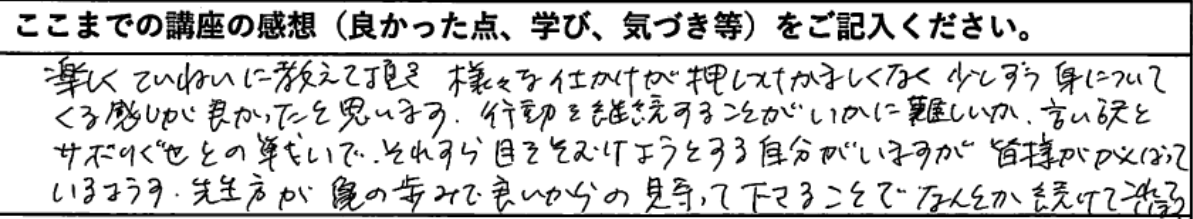 ここまでの講座の感想（良かった点、学び、気づき等）をご記入ください。
楽しくていねいに教えて頂き 様々な仕かけが押しつけがましくなく少しずつ身について
くる感じが良かったと思います。行動を継続することがいかに難しいか、言い訳と
サボりぐせとの争いで、それすら目をそむけようとする自分がいますが 皆様ががんばって
いるようす、先生方が亀の歩みで良いからの見守って下さることでなんとか続けて